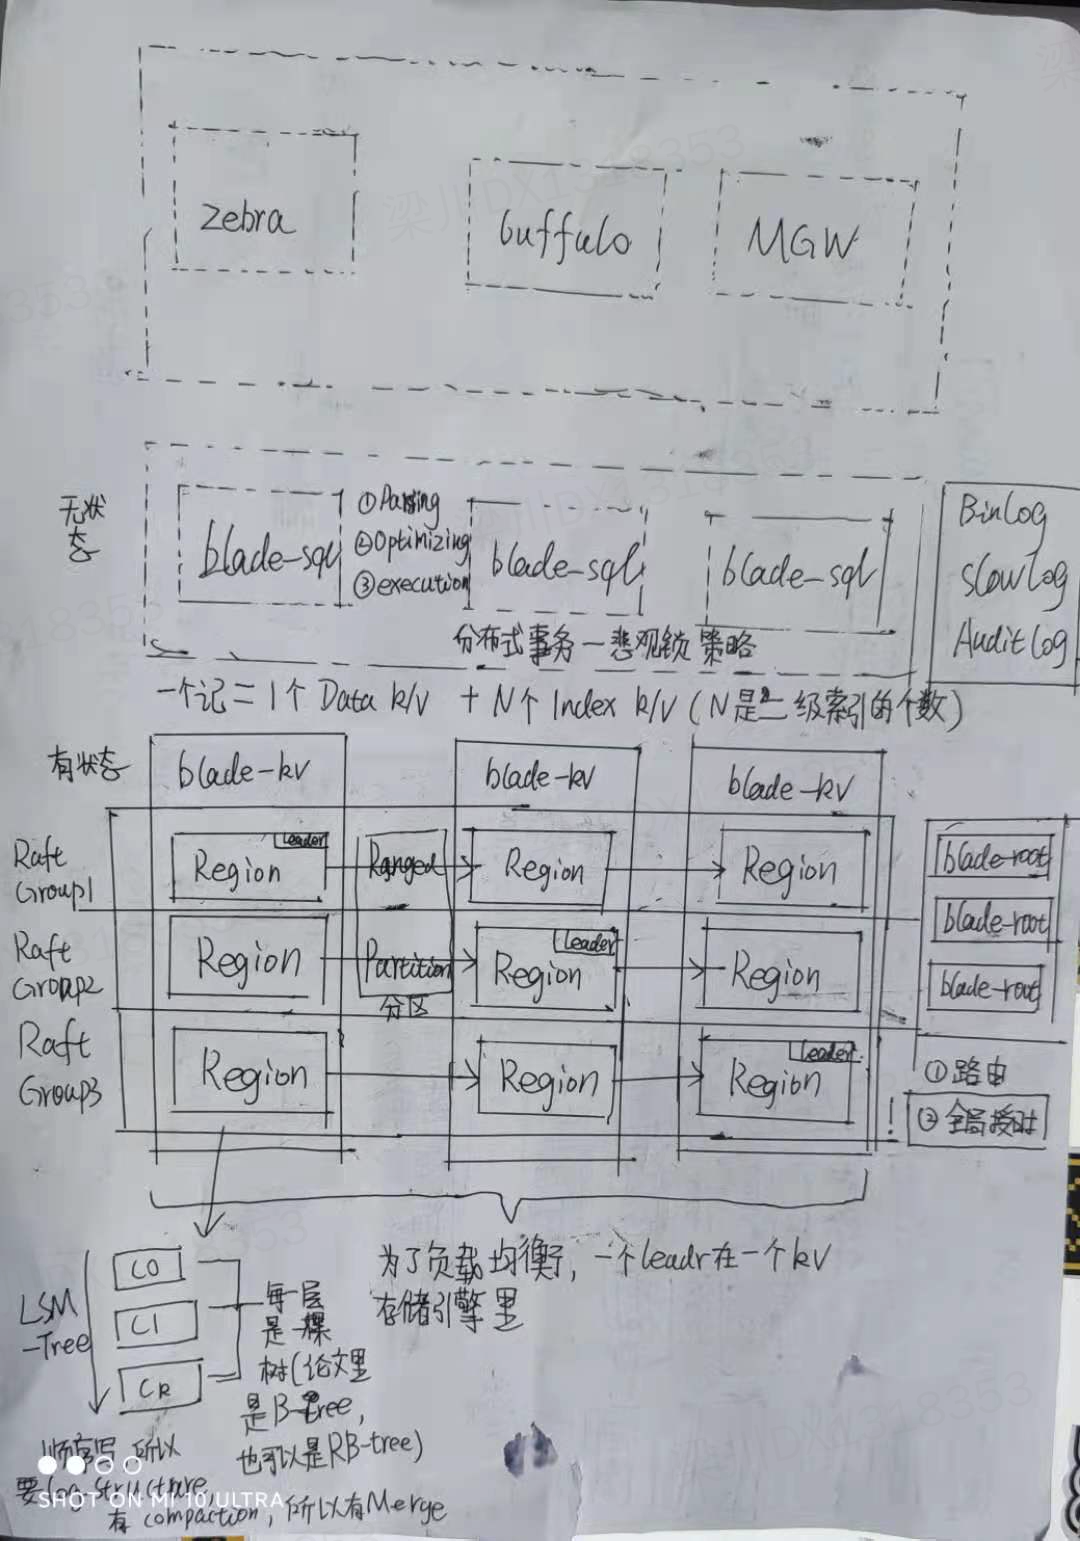 zebra
buffalo
MGW
无状态
blade-sql
①Parsing
②Optimizing
③execution
blade-sql
blade-sql
分布式事务—悲观锁策略
BinLog
SlowLog
AuditLog
一个记=1个 Data k/v + N个 Index k/v (N是二级索引的个数)
有状态
blade-kv
blade-kv
blade-kv
Raft Group1
Region
Leader
Ranged
Region
Region
Raft Group2
Region
Partition
分区
Region
Leader
Region
Raft Group3
Region
Region
Region
Leader
blade-root
blade-root
blade-root
①路由
②全局授时
为了负载均衡，一个leadr在一个kv
存储引擎里
LSM
-Tree
C0
C1
CR
每一层
是一棵
树(论文里
是B-tree,
也可以是RB-tree)
顺序写 所以
要log-structure,
有 compaction, 所以有Merge
SHOT ON MI 10 ULTRA